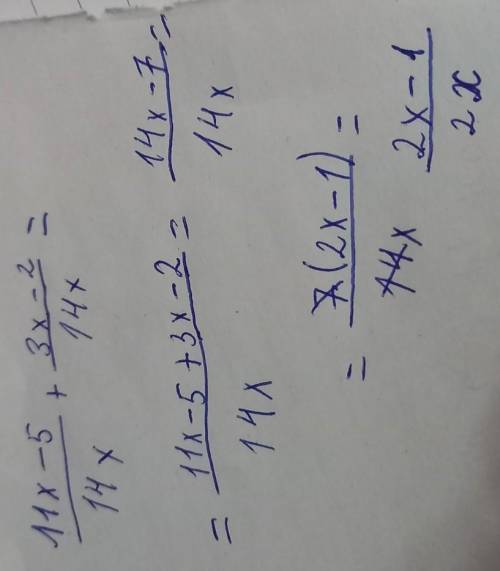 11x-5/14x + 3x-2/14x =
= 11x-5+3x-2/14x = 14x-7/14x =
= 7(2x-1)/14x = 2x-1/2x